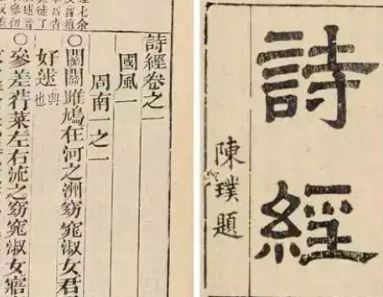 詩經
陳璞題
詩經卷之一
國風一
周南一之一
〇關關雎鳩在河之洲窈窕淑女君
好逑興也
〇參差荇菜左右流之窈窕淑女寤